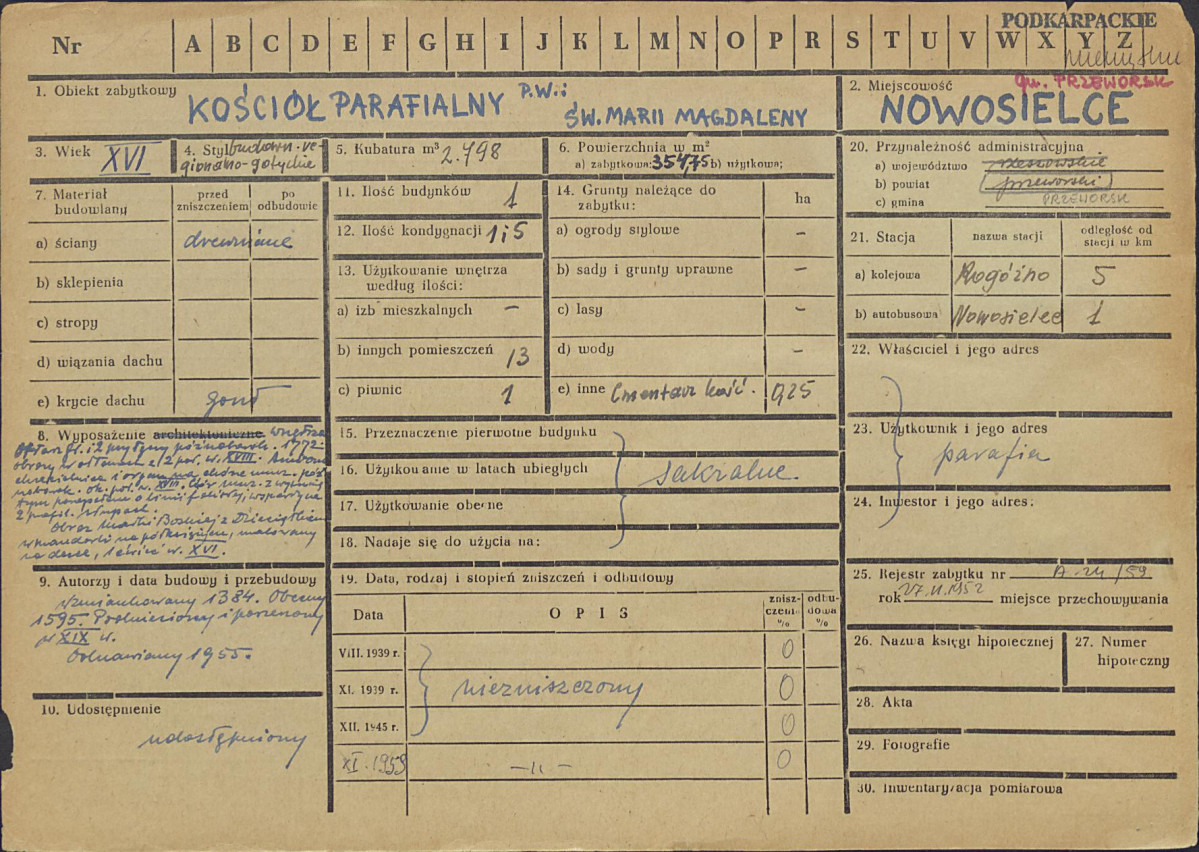 PODKARPACKIE
Nr A B C D E F G H I J K L M N O P R S T U V W X Y Z
gm. PRZEWORSK
1. Obiekt zabytkowy KOŚCIÓŁ PARAFIALNY P.W.:
ŚW. MARII MAGDALENY
2. Miejscowość
NOWOSIELCE
3. Wiek XVI
4. Styl budown. re-
gionalno-gotyckie
5. Kubatura m³ 2.798
6. Powierzchnia w m²
a) zabytkowa: 354,75 b) użytkowa:
7. Materiał budowlany
przed zniszczeniem
po odbudowie
a) ściany drewniane
b) sklepienia
c) stropy
d) wiązania dachu
e) krycie dachu gont
8. Wyposażenie architektoniczne wnętrza
Ołtarz gł. i 2 przy tęczy późnobarok. 1792
obrazy w ołtarzach z 2 poł. w. XVIII. Ambona
chrzcielnica i organy
barok. ok. poł. w. XVIII. Chór muz. z
o linii falistej, wsparty na
2 profil. słupach.
Obraz Matki Boskiej z Dzieciątkiem
w mandorli na półksiężycu, malowany
na desce, 1 ćwierć w. XVI.
9. Autorzy i data budowy i przebudowy
wzmiankowany 1384. Obecny
1595. Podniesiony i poszerzony
w XIX w.
Odnawiany 1955.
10. Udostępnienie
udostępniony
11. Ilość budynków 1
12. Ilość kondygnacji 1,5
13. Użytkowanie wnętrza
według ilości:
a) izb mieszkalnych –
b) innych pomieszczeń 13
c) piwnic 1
14. Grunty należące do
zabytku: ha
a) ogrody stylowe –
b) sady i grunty uprawne –
c) lasy –
d) wody –
e) inne Cmentarz kość. 0,25
15. Przeznaczenie pierwotne budynku
16. Użytkowanie w latach ubiegłych sakralne.
17. Użytkowanie obecne
18. Nadaje się do użycia na:
19. Data, rodzaj i stopień zniszczeń i odbudowy
Data OPIS zniszczenia % odbudowa %
VIII. 1939 r. 0
XI. 1939 r. niezniszczony 0
XII. 1945 r. 0
XI. 1959 –„– 0
20. Przynależność administracyjna
a) województwo rzeszowskie
b) powiat (przeworski)
c) gmina PRZEWORSK
21. Stacja nazwa stacji odległość od stacji w km
a) kolejowa Rogóżno 5
b) autobusowa Nowosielce 1
22. Właściciel i jego adres
23. Użytkownik i jego adres
parafia
24. Inwestor i jego adres:
25. Rejestr zabytku nr A-24/59
rok 27.II.1952 miejsce przechowywania
26. Nazwa księgi hipotecznej
27. Numer hipoteczny
28. Akta
29. Fotografie
30. Inwentaryzacja pomiarowa